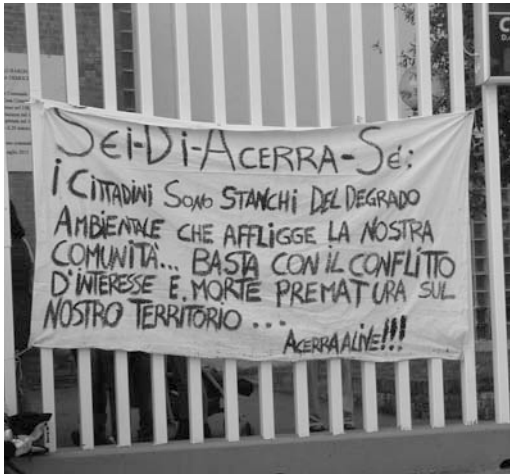 SEI-Di-ACERRA-SE':
i CITTADINI SONO STANCHI DEL DEGRADO
AMBIENTALE CHE AFFLIGGE LA NOSTRA
COMUNITÀ... BASTA CON IL CONFLITTO
D'INTERESSE E MORTE PREMATURA SUL
NOSTRO TERRITORIO ...
ACERRA ALIVE!!!